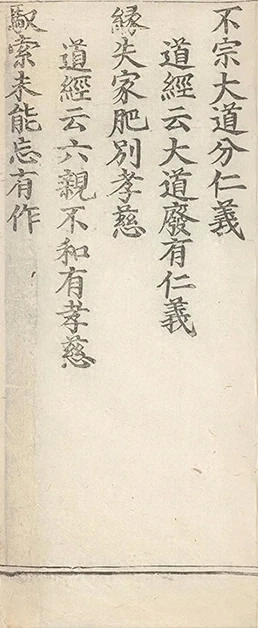 不宗大道分仁義
道經云大道廢有仁義
縁失家肥別孝慈
道經云六親不和有孝慈
馭索未能忘有作